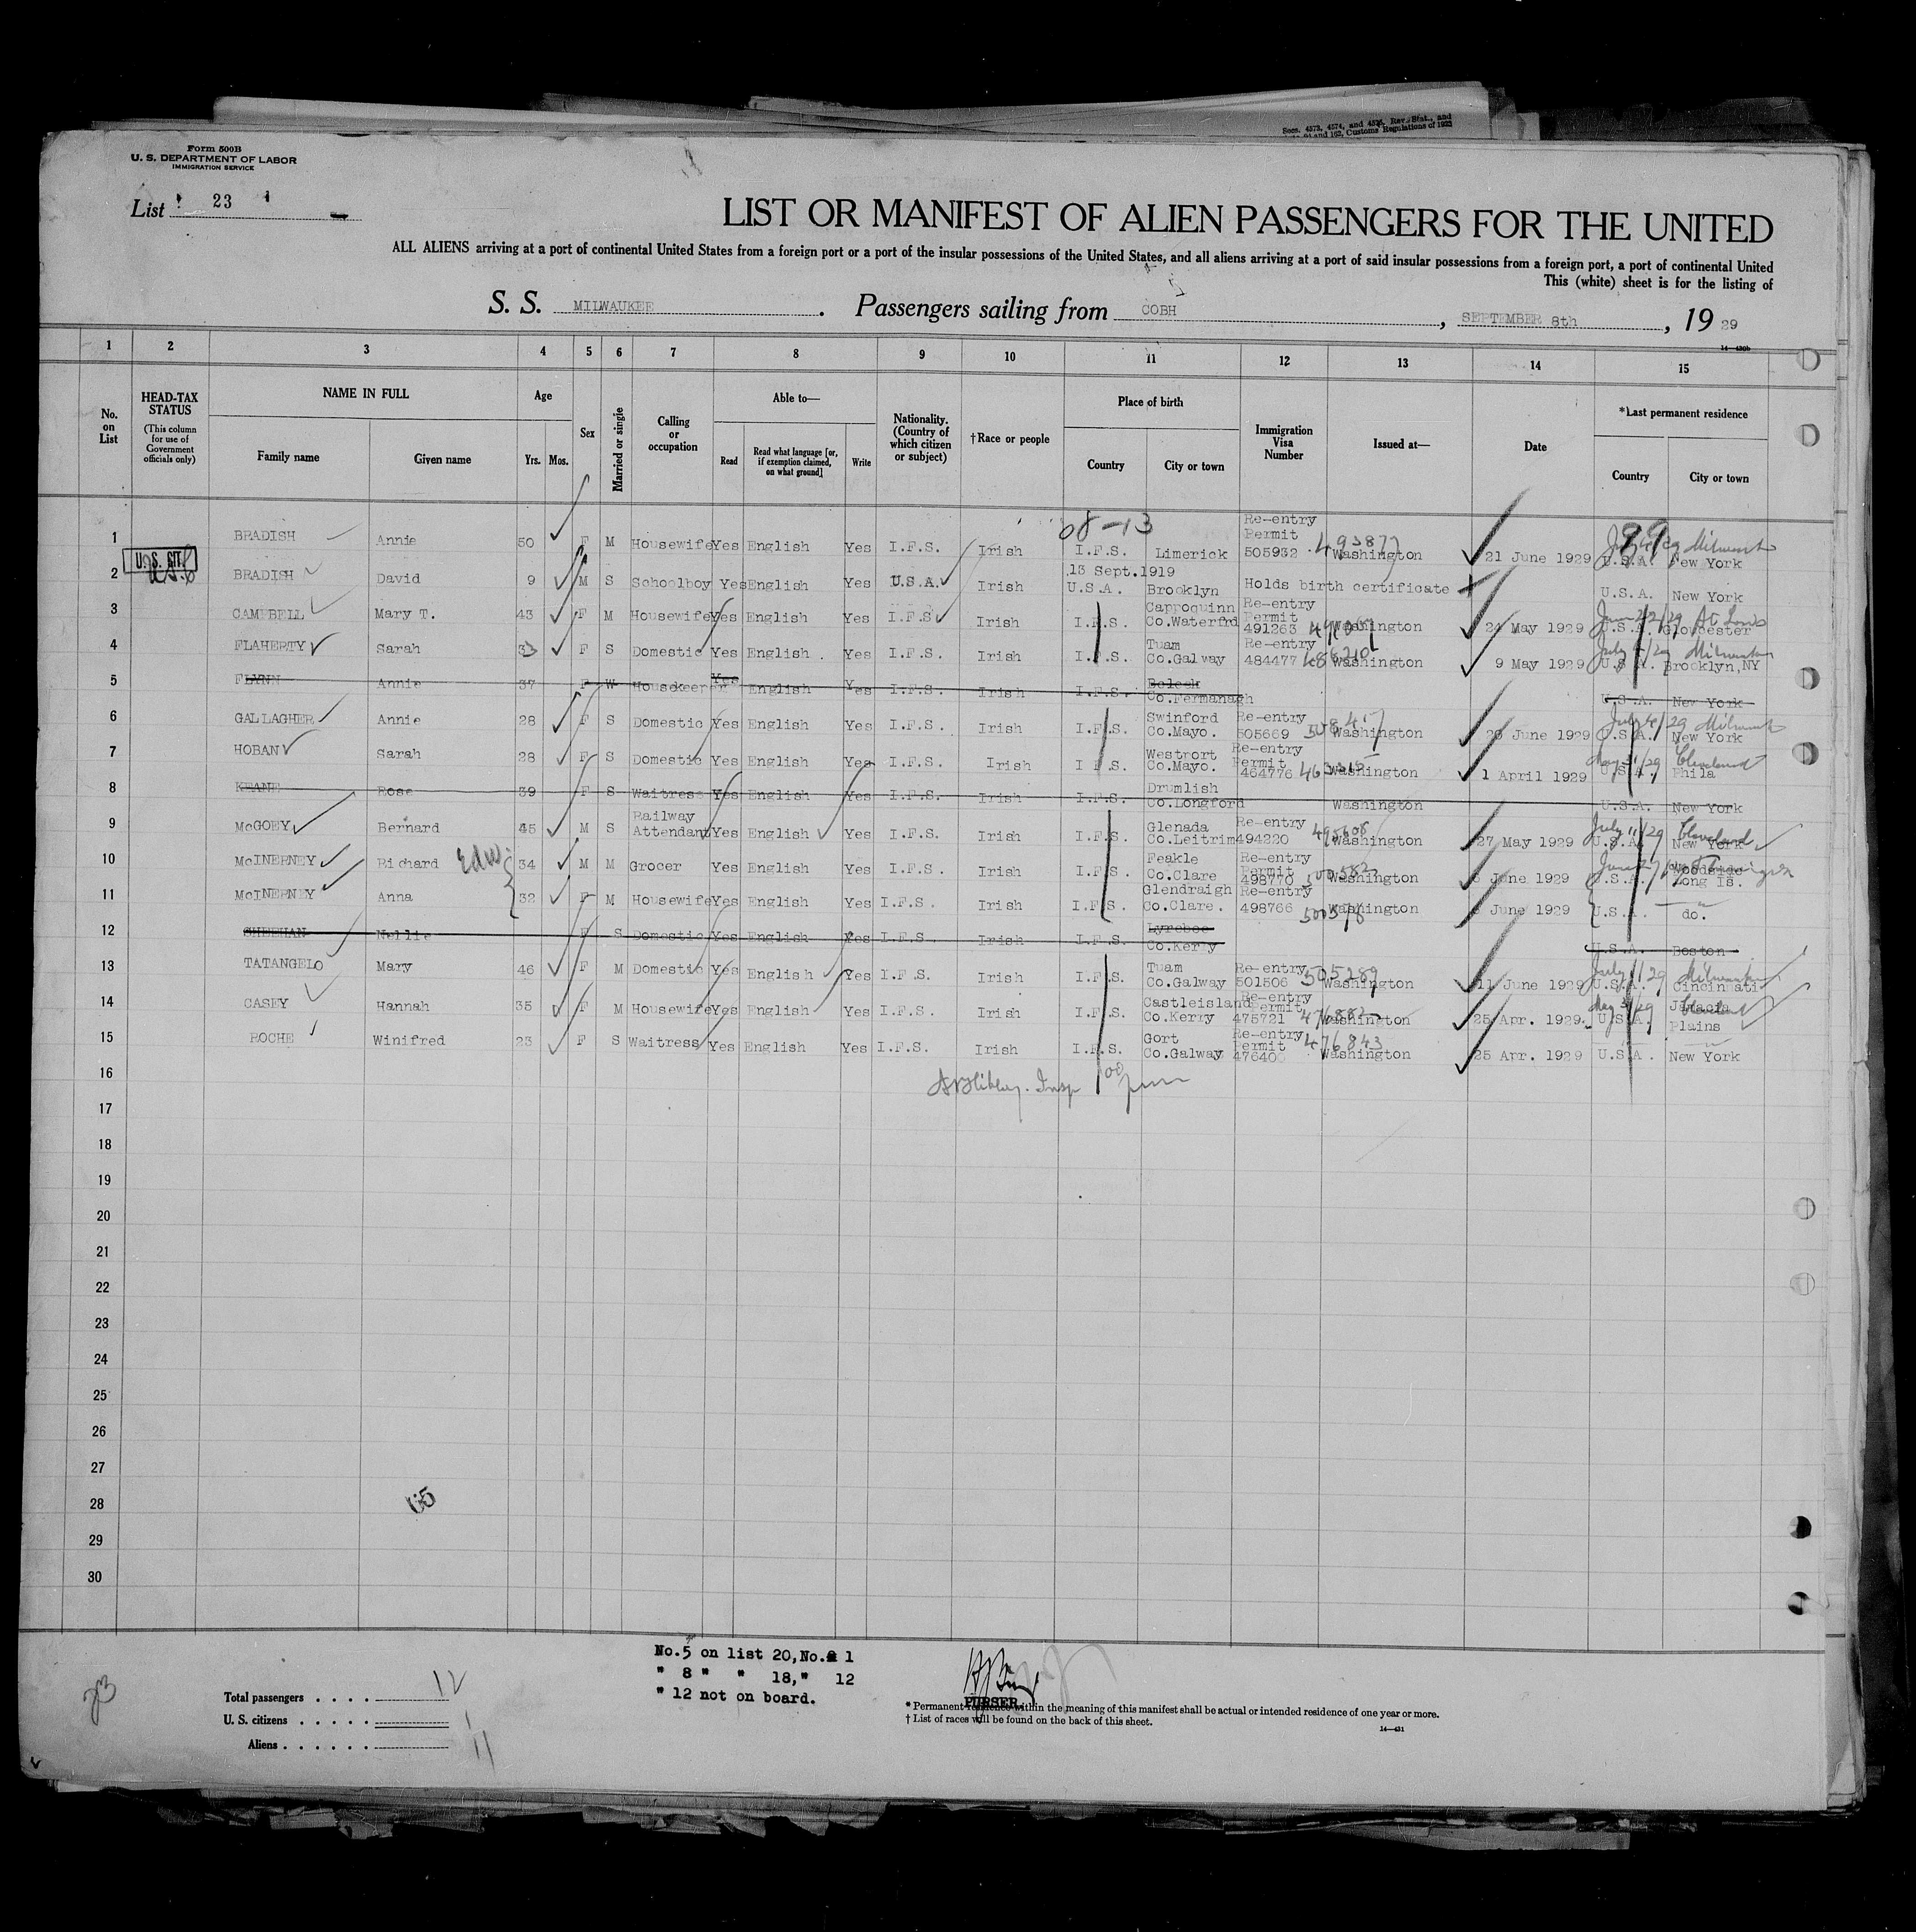 Secs. 4573, 4574, and 4575, Rev. Stat., and
and 102, Customs Regulations of 1923
Form 500B
U. S. DEPARTMENT OF LABOR
IMMIGRATION SERVICE
List 23
LIST OR MANIFEST OF ALIEN PASSENGERS FOR THE UNITED
ALL ALIENS arriving at a port of continental United States from a foreign port or a port of the insular possessions of the United States, and all aliens arriving at a port of said insular possessions from a foreign port, a port of continental United
This (white) sheet is for the listing of
S. S. MILWAUKEE. Passengers sailing from COBH, SEPTEMBER 8th, 1929
14-430b
1 2 3 4 5 6 7 8 9 10 11 12 13 14 15
No. on List
HEAD-TAX STATUS
(This column for use of Government officials only)
NAME IN FULL
Family name Given name
Age
Yrs. Mos.
Sex
Married or single
Calling or occupation
Able to—
Read Read what language [or, if exemption claimed, on what ground] Write
Nationality. (Country of which citizen or subject)
†Race or people
Place of birth
Country City or town
Immigration Visa Number
Issued at—
Date
*Last permanent residence
Country City or town
08-13 99
1 BRADISH Annie 50 F M Housewife Yes English Yes I.F.S. Irish I.F.S. Limerick Re-entry Permit 505932 493877 Washington 21 June 1929 U.S.A. New York
U.S. CIT.
2 BRADISH David 9 M S Schoolboy Yes English Yes U.S.A. Irish 13 Sept.1919 U.S.A. Brooklyn Holds birth certificate U.S.A. New York
3 CAMPBELL Mary T. 43 F M Housewife Yes English Yes I.F.S. Irish I.F.S. Cappoquinn Co.Waterfrd Re-entry Permit 491263 Washington 24 May 1929 U.S.A. Gloucester
4 FLAHERTY Sarah 33 F S Domestic Yes English Yes I.F.S. Irish I.F.S. Tuam Co.Galway Re-entry 484477 486210 Washington 9 May 1929 U.S.A. Brooklyn,NY
5 FLYNN Annie 37 F W Housekeeper Yes English Yes I.F.S. Irish I.F.S. Beleek Co.Fermanagh U.S.A. New York
6 GALLAGHER Annie 28 F S Domestic Yes English Yes I.F.S. Irish I.F.S. Swinford Co.Mayo. Re-entry 505669 Washington 20 June 1929 U.S.A. New York
7 HOBAN Sarah 28 F S Domestic Yes English Yes I.F.S. Irish I.F.S. Westport Co.Mayo. Re-entry Permit 464776 Washington 1 April 1929 U.S.A. Phila
8 KEANE Rose 39 F S Waitress Yes English Yes I.F.S. Irish I.F.S. Drumlish Co.Longford Washington U.S.A. New York
9 McGOEY Bernard 45 M S Railway Attendant Yes English Yes I.F.S. Irish I.F.S. Glenada Co.Leitrim Re-entry 494220 Washington 27 May 1929 U.S.A. New York
10 McINERNEY Richard Edw. 34 M M Grocer Yes English Yes I.F.S. Irish I.F.S. Feakle Co.Clare Re-entry Permit 498770 500582 Washington June 1929 U.S.A. Woodside Long Is.
11 McINERNEY Anna 32 F M Housewife Yes English Yes I.F.S. Irish I.F.S. Glendraigh Co.Clare. Re-entry 498766 500578 Washington June 1929 U.S.A. do.
12 SHEEHAN Nellie F S Domestic Yes English Yes I.F.S. Irish I.F.S. Co.Kerry U.S.A. Boston
13 TATANGELO Mary 46 F M Domestic Yes English Yes I.F.S. Irish I.F.S. Tuam Co.Galway Re-entry 501506 505289 Washington 11 June 1929 U.S.A. Cincinnati
14 CASEY Hannah 35 F M Housewife Yes English Yes I.F.S. Irish I.F.S. Castleisland Co.Kerry Re-entry Permit 475721 476882 Washington 25 Apr. 1929. U.S.A. Jamaica Plains
15 ROCHE Winifred 23 F S Waitress Yes English Yes I.F.S. Irish I.F.S. Gort Co.Galway Re-entry Permit 476400 476843 Washington 25 Apr. 1929 U.S.A. New York
16
17
18
19
20
21
22
23
24
25
26
27
28
29
30
No.5 on list 20, No. 1
" 8 " " 18, " 12
" 12 not on board.
PURSER
Total passengers . . . . 12
U. S. citizens . . . . . 1
Aliens . . . . . . 11
* Permanent residence within the meaning of this manifest shall be actual or intended residence of one year or more.
† List of races will be found on the back of this sheet.
14-431